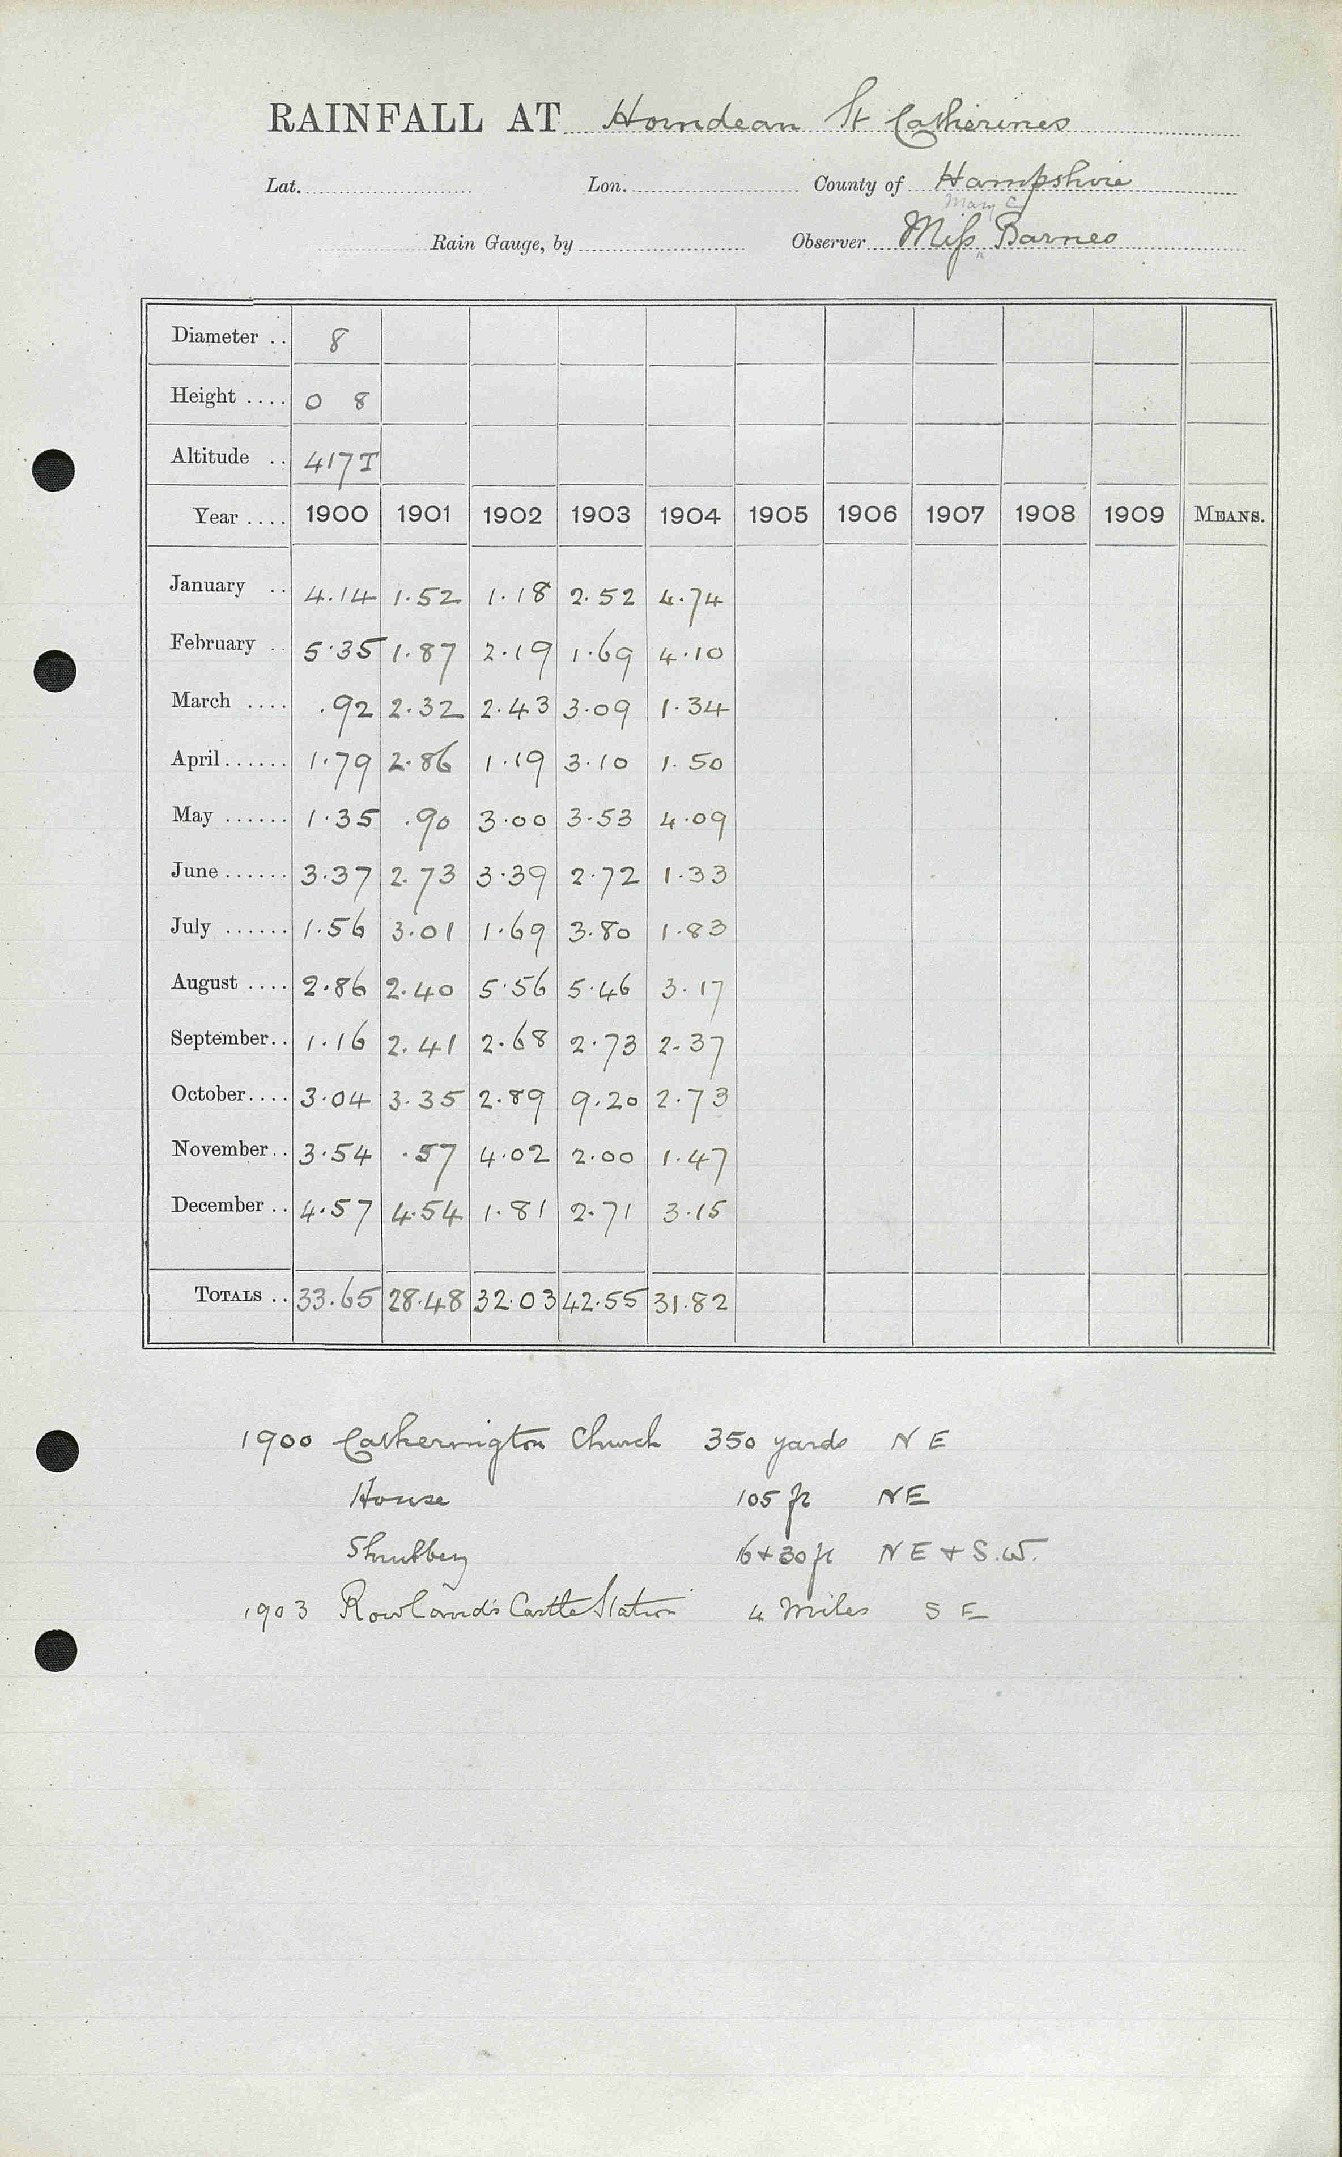 RAINFALL AT Horndean St Catherines
Lat. Lon. County of Hampshire
Mary C
Rain Gauge, by Observer Miss Barnes
Diameter .. 8
Height .... 0 8
Altitude .. 417T
Year .... 1900 1901 1902 1903 1904 1905 1906 1907 1908 1909 MEANS.
January .. 4.14 1.52 1.18 2.52 4.74
February .. 5.35 1.87 2.19 1.69 4.10
March .... .92 2.32 2.43 3.09 1.34
April...... 1.79 2.86 1.19 3.10 1.50
May ...... 1.35 .90 3.00 3.53 4.09
June...... 3.37 2.73 3.39 2.72 1.33
July ...... 1.56 3.01 1.69 3.80 1.83
August .... 2.86 2.40 5.56 5.46 3.17
September.. 1.16 2.41 2.68 2.73 2.37
October.... 3.04 3.35 2.89 9.20 2.73
November.. 3.54 .57 4.02 2.00 1.47
December .. 4.57 4.54 1.81 2.71 3.15
TOTALS .. 33.65 28.48 32.03 42.55 31.82
1900 Catherington Church 350 yards N E
House 105 ft NE
Shrubbery 16 + 30 ft N E + S.W.
1903 Rowland's Castle Station 4 Miles S E